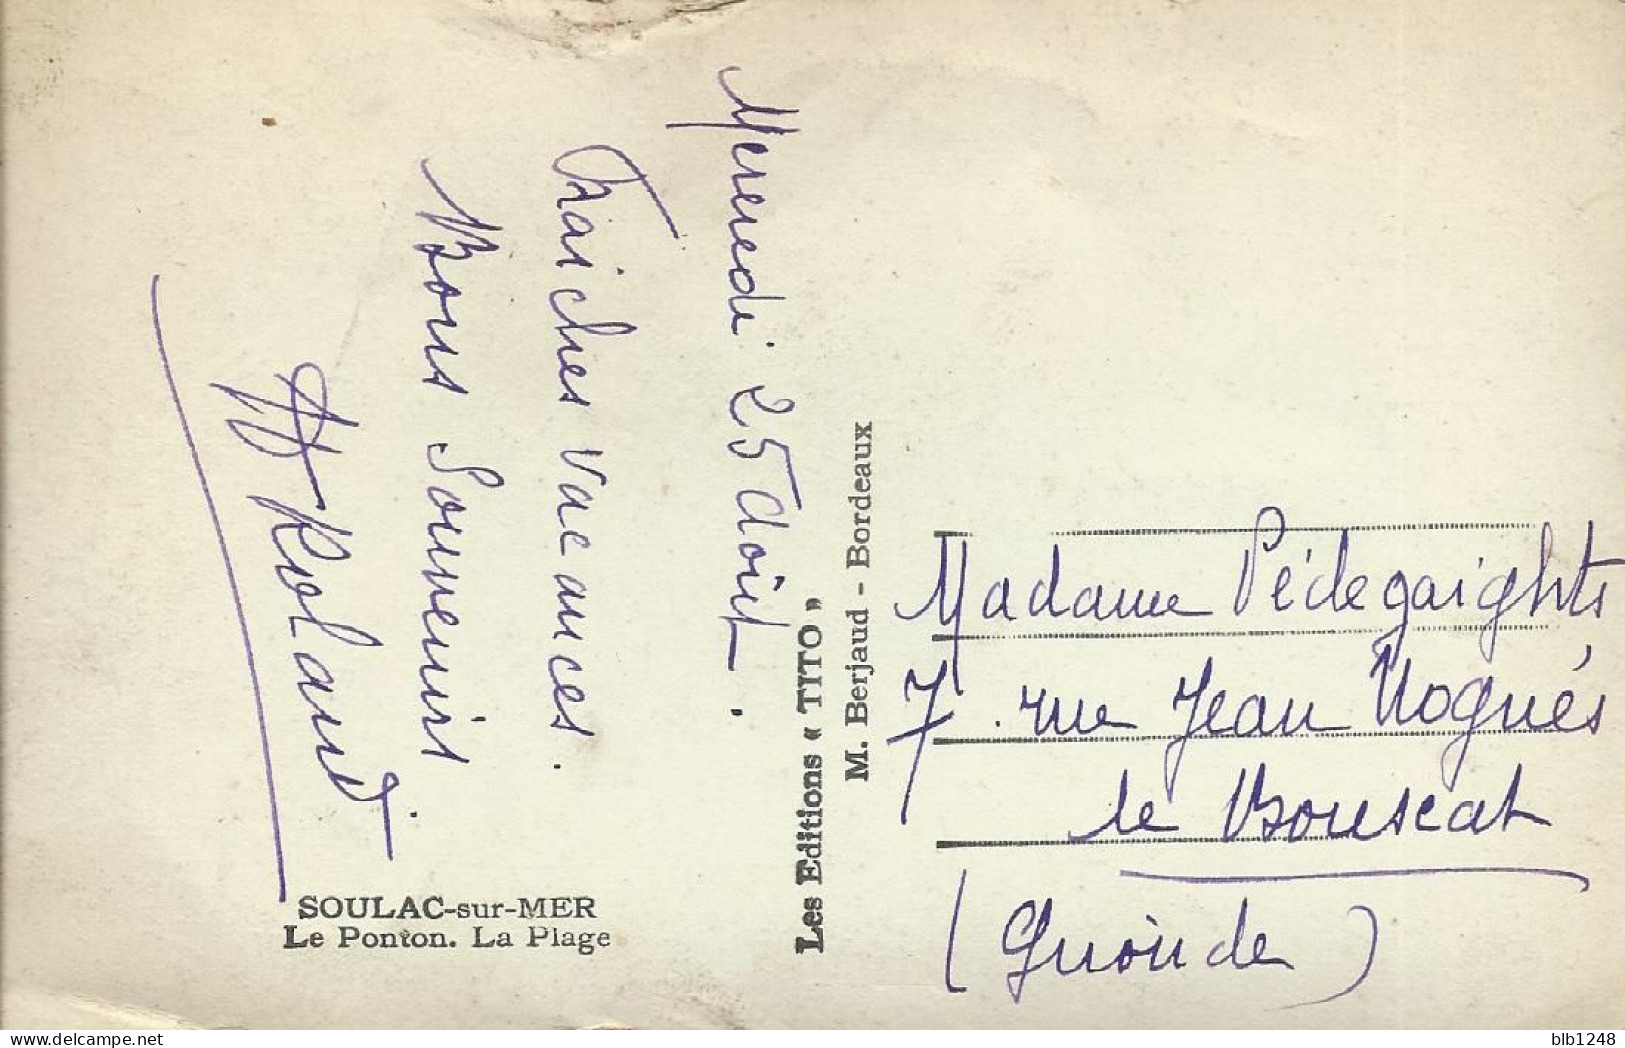 Mercredi 25 Août.
Fraiches Vacances.
Bons Souvenirs
Rolland
SOULAC-sur-MER
Le Ponton. La Plage
Les Editions « TITO »
M. Berjaud - Bordeaux
Madame Pédegaights
7 rue Jean Nogués
le Bouscat
(Gironde)
blb1248